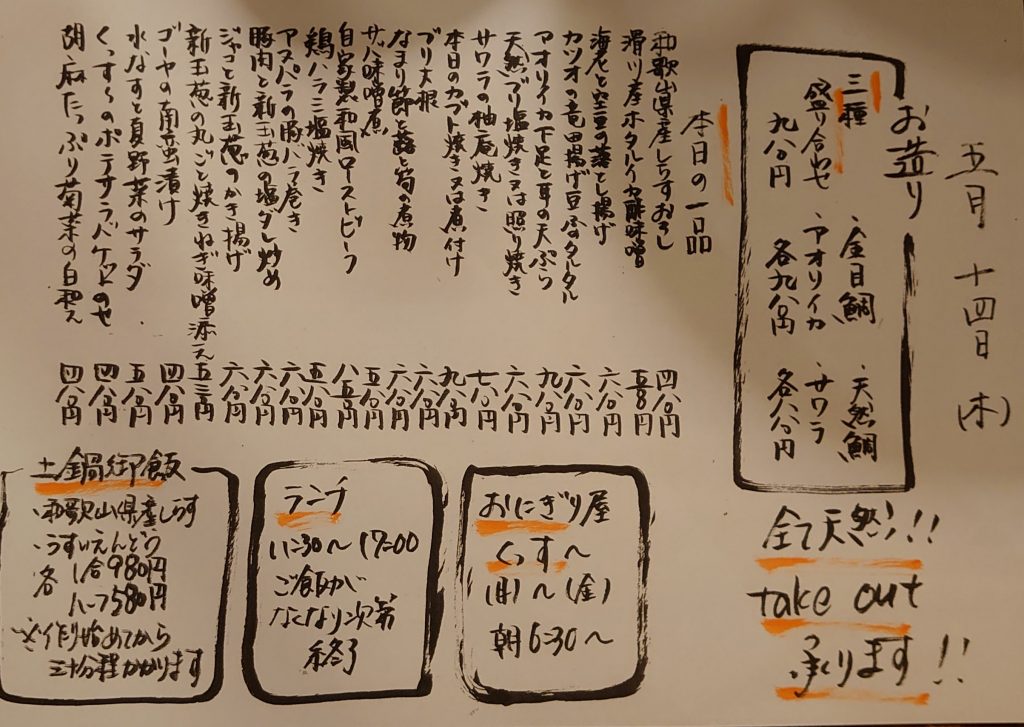 五月 十四日 (木)
お造り
・金目鯛 ・天然鯛
三種 ・アオリイカ ・サワラ
盛り合わせ
九八〇円 各九八〇円 各八八〇円
全て天然!!
take out
承ります!!
本日の一品
和歌山県産しらすおろし 四八〇円
滑川産ホタルイカ酢味噌 五八〇円
海老と空豆の落とし揚げ 六八〇円
カツオの竜田揚げ豆ふタルタル 六八〇円
アオリイカ下足と耳の天ぷら 九八〇円
天然ブリ塩焼き又は照り焼き 六八〇円
サワラの柚庵焼き 七八〇円
本日のカブト焼き又は煮付け 九八〇円
ブリ大根 六八〇円
なまり節と蕗と筍の煮物 六八〇円
サバ味噌煮 五八〇円
自家製和風ローストビーフ 八五〇円
鶏ハラミ塩焼き 五八〇円
アスパラの豚バラ巻き 六八〇円
豚肉と新玉葱の塩ダレ炒め 六八〇円
ジャコと新玉葱のかき揚げ 六八〇円
新玉葱の丸ごと焼きねぎ味噌添え 五三〇円
ゴーヤの南蛮漬け 四八〇円
水なすと夏野菜のサラダ 五八〇円
くっす〜のポテサラバケットのせ 四八〇円
胡麻たっぷり菊菜の白和え 四八〇円
おにぎり屋
くっす〜
(月)〜(金)
朝6:30〜
ランチ
11:30〜17:00
ご飯が
なくなり次第
終了
土鍋御飯
・和歌山県産しらす
・うすいえんどう
各 1合980円
ハーフ580円
※作り始めてから
三十分程かかります